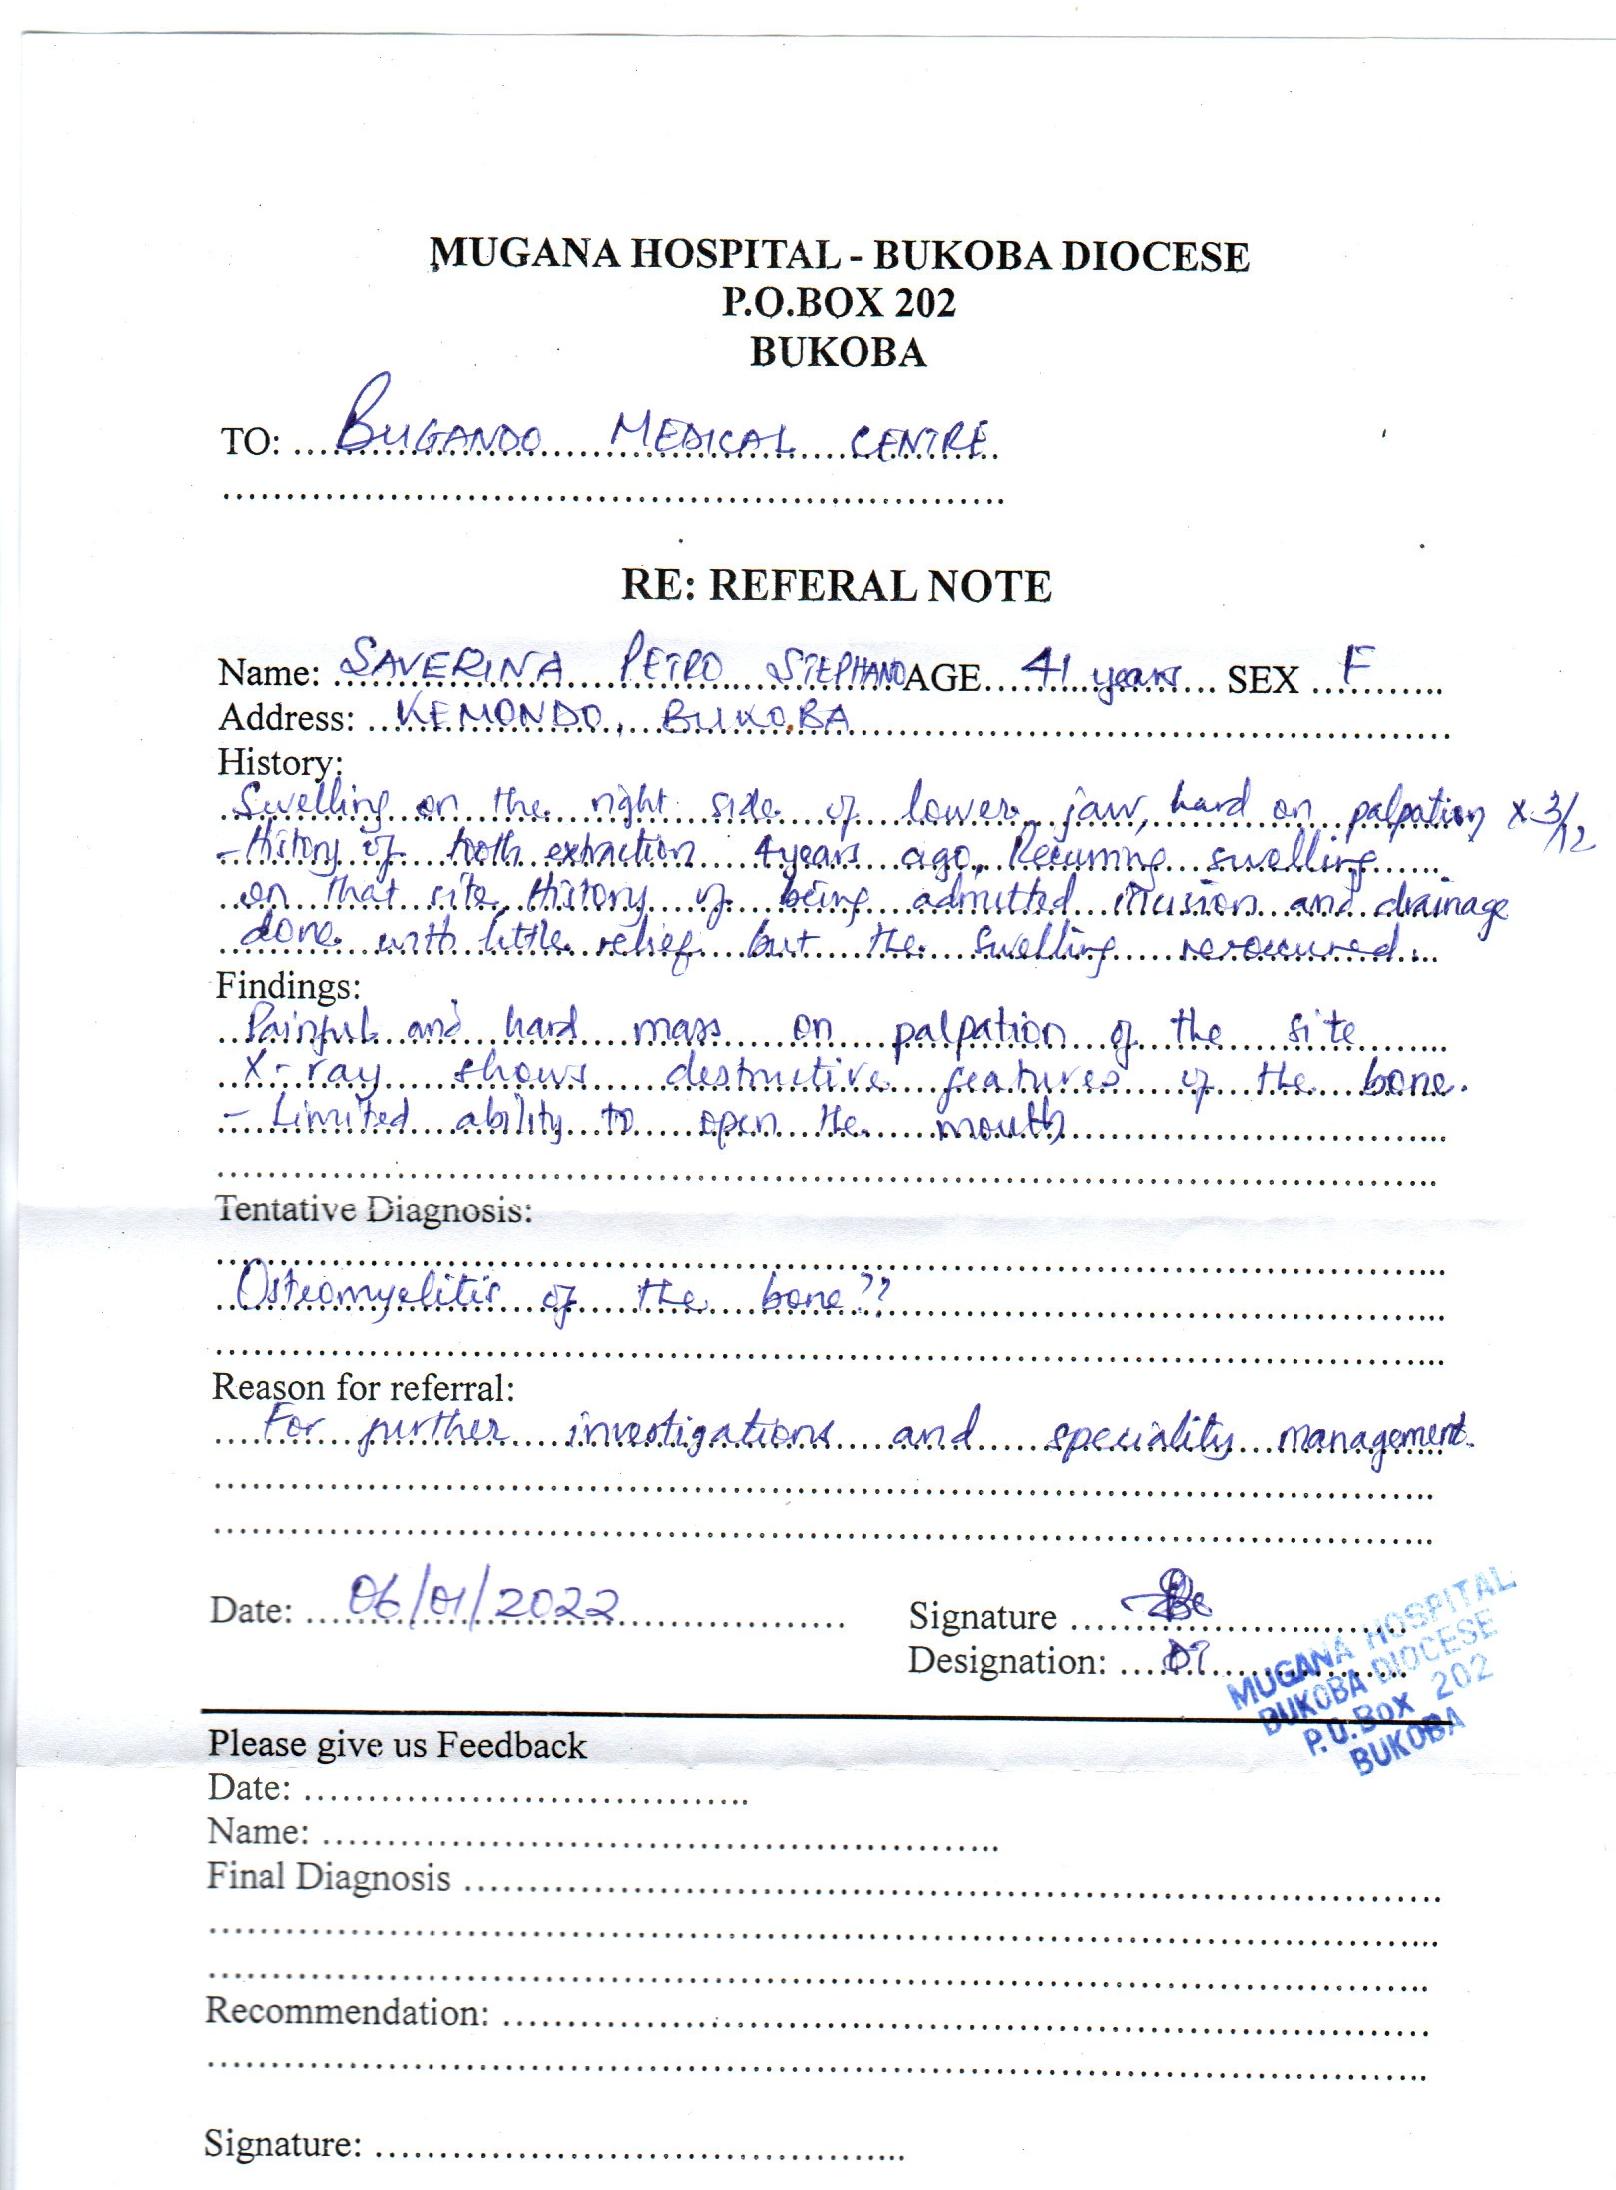 MUGANA HOSPITAL - BUKOBA DIOCESE
P.O.BOX 202
BUKOBA
TO: BUGANDO MEDICAL CENTRE
RE: REFERAL NOTE
Name: SAVERINA PETRO STEPHANO AGE 41 years SEX F
Address: KEMONDO, BUKOBA
History:
Swelling on the right side of lower jaw, hard on palpation x 3/12
- History of tooth extraction 4years ago, Recurring swelling
on that site, History of being admitted incision and drainage
done with little relief but the swelling reroccured.
Findings:
Painful and hard mass on palpation of the site
X-ray shows destructive features of the bone.
- Limited ability to open the mouth
Tentative Diagnosis:
Osteomyelitis of the bone??
Reason for referral:
For further investigations and speciality management.
Date: 06/01/2022
Signature
Designation:
MUGANA HOSPITAL
BUKOBA DIOCESE
P.O.BOX 202
BUKOBA
Please give us Feedback
Date:
Name:
Final Diagnosis
Recommendation:
Signature: